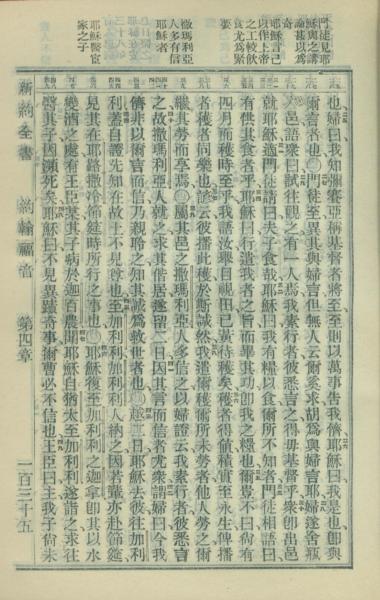 門徒見耶
穌與之講
論甚以為
奇
耶穌言己
以作上帝
之工較飲
食尤為緊
要
撒瑪利亞
人多有信
耶穌者
耶穌醫官
家之子
也婦曰我知彌賽亞稱基督者將至至則以萬事告我儕耶穌曰我是也卽與
爾言者也○門徒至異其與婦言但無人云爾奚求胡為與婦言耶婦遂舍瓶
入邑語衆曰試往觀之有一人焉我素行者彼悉言之得毋基督乎衆卽出邑
就耶穌適門徒請曰夫子食哉耶穌曰我有糧以食爾所不知者門徒相語曰
有供其食者乎耶穌曰行遣我者之旨而畢其功卽我之糧也爾豈不曰尚有
四月而穫時至乎我語汝舉目視田已黃待穫矣穫者得値積實至永生俾播
者穫者同樂也諺云彼播此穫於斯誠然我遣爾穫爾所未勞者他人勞之爾
繼其勞而享焉○屬其邑之撒瑪利亞人多信之以婦證云我素行者彼悉言
之故撒瑪利亞人就之求其偕居遂留二日因其言而信者尤衆謂婦曰今我
儕非以爾言而信乃親聆之知其誠為救世者也○越二日耶穌去彼往加利
利蓋自證先知在故土不見尊也至加利利加利利人納之因若輩亦赴節筵
見其在耶路撒冷節筵時所行之事也○耶穌復至加利利之迦拿卽其以水
變酒之處有王臣某其子病於迦百農聞耶穌自猶太至加利利遂詣之求往
醫其子因瀕死矣耶穌曰不見異蹟奇事爾曹必不信也王臣曰主我子尚未
新約全書 約翰福音 第四章 一百三十五